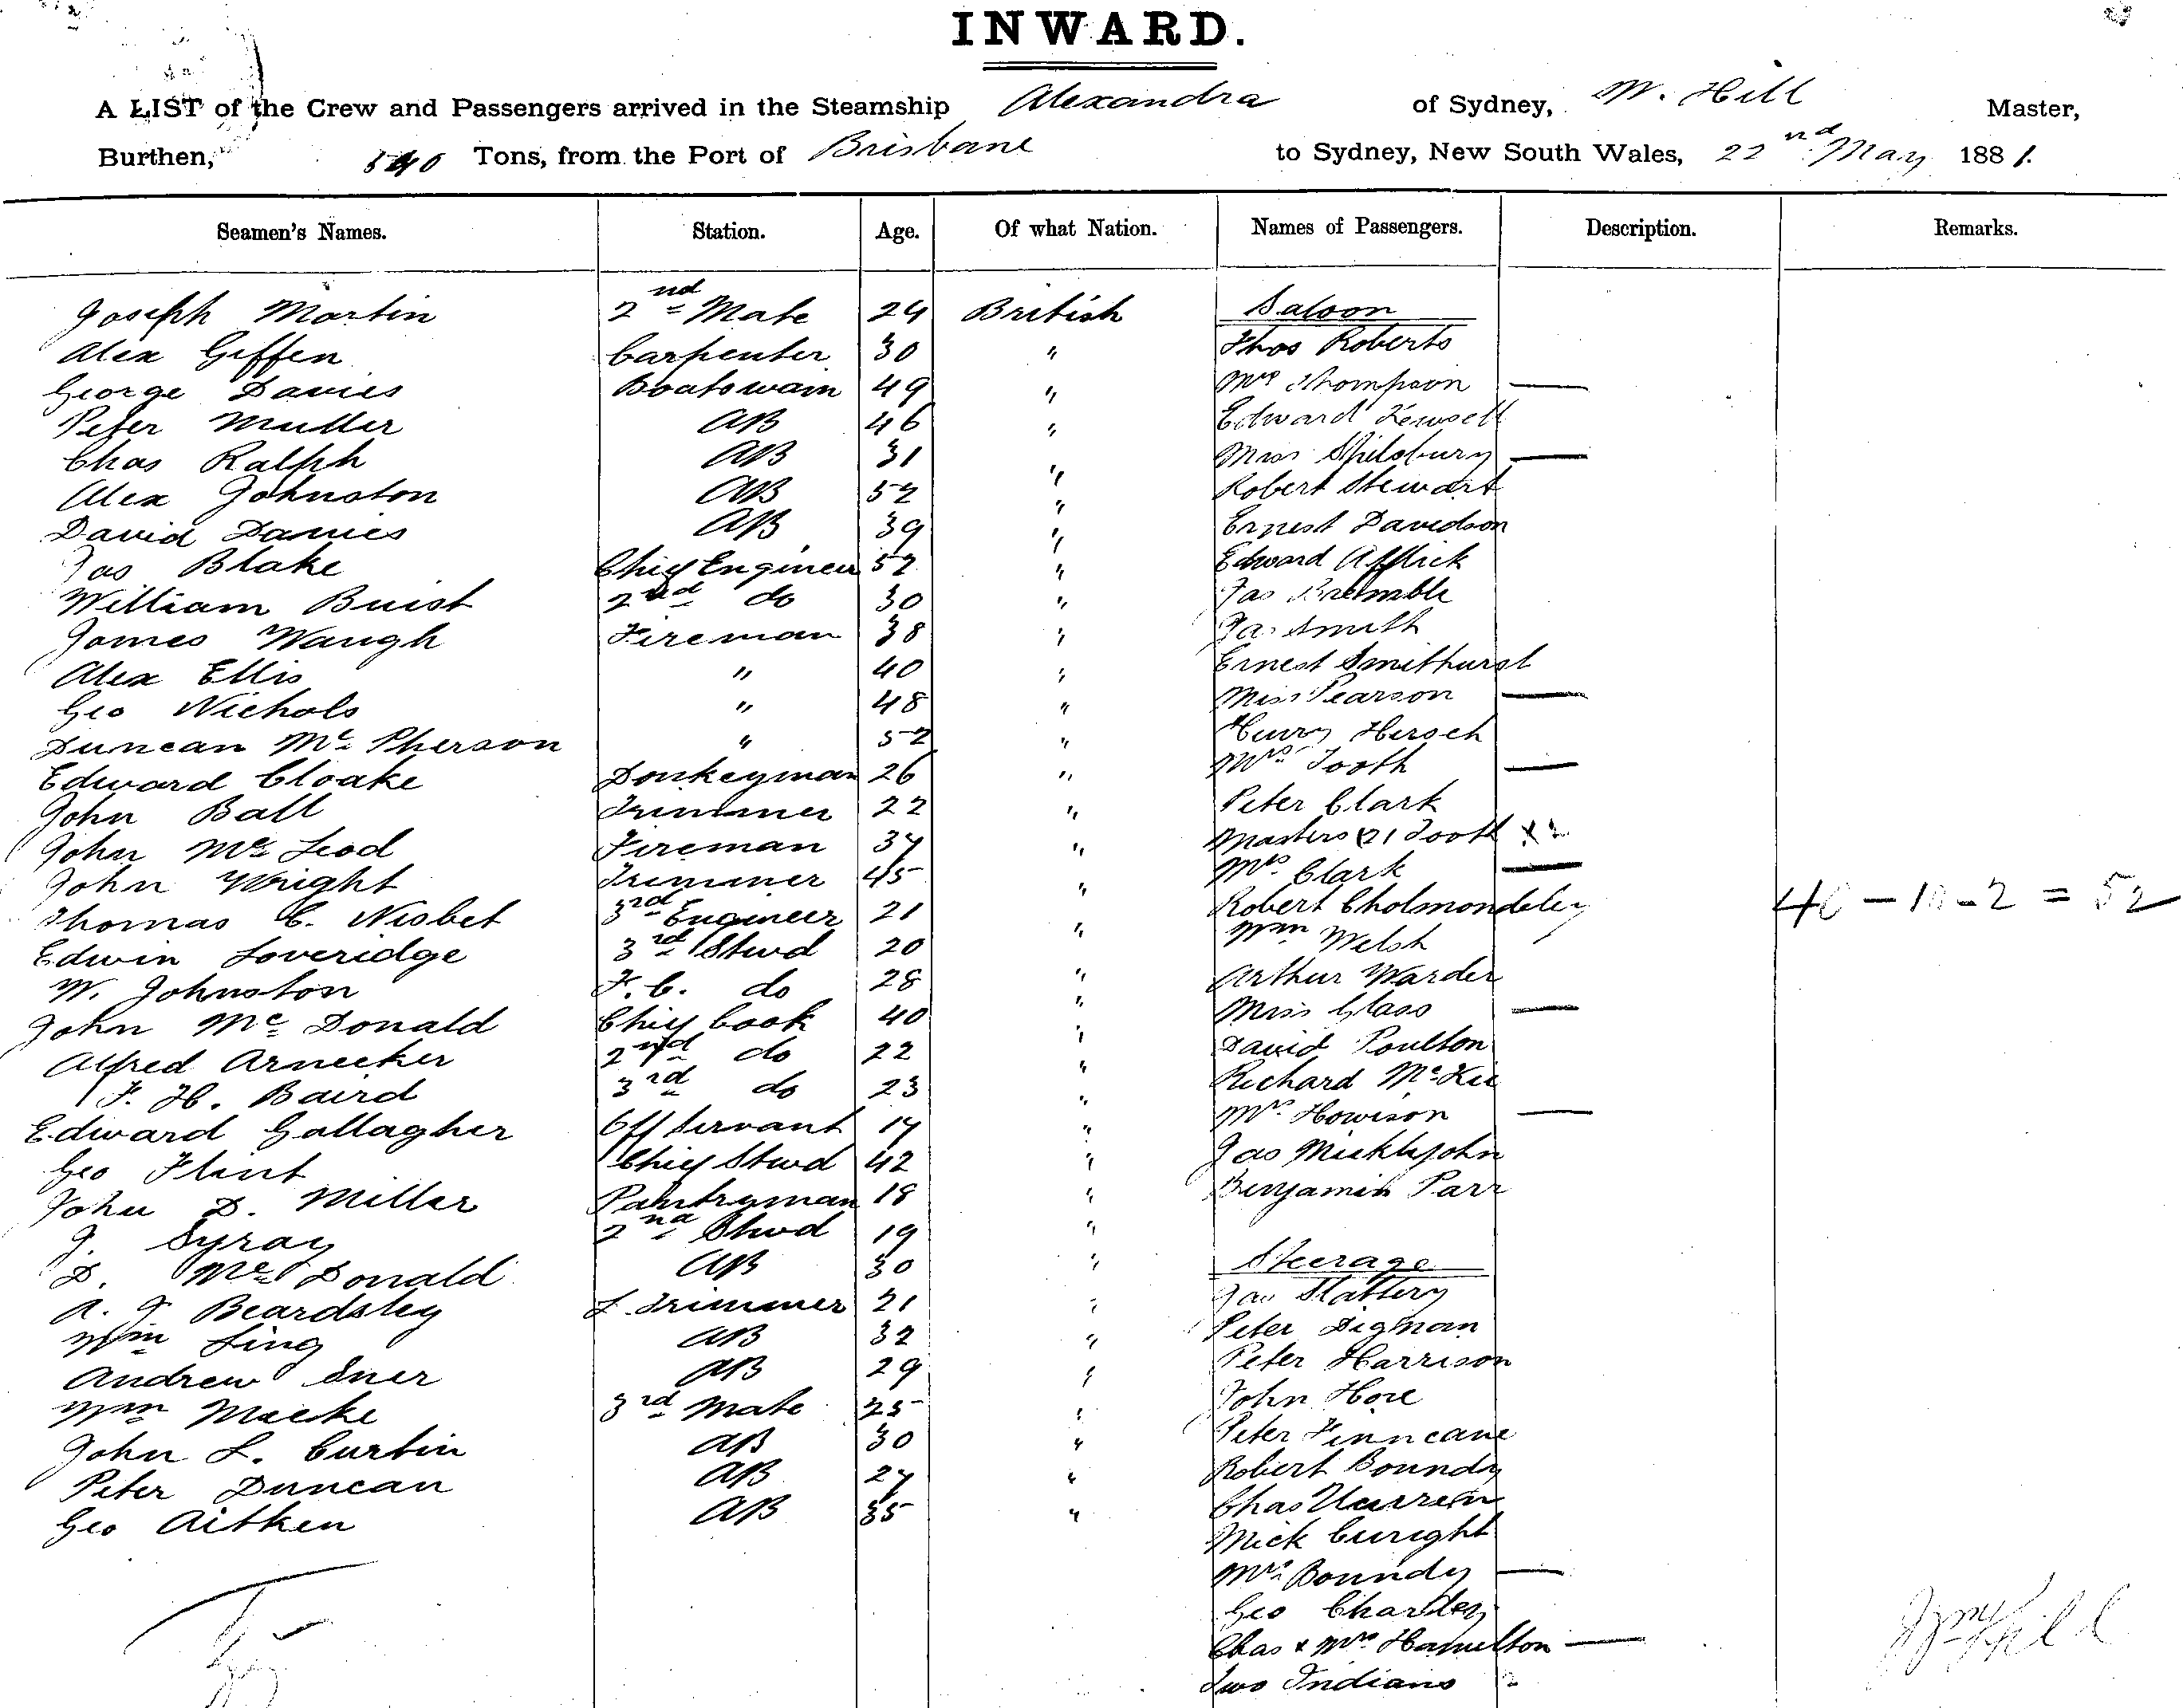 INWARD.
A LIST of the Crew and Passengers arrived in the Steamship Alexandra of Sydney, W. Hill Master,
Burthen, 540 Tons, from the Port of Brisbane to Sydney, New South Wales, 22nd May 1881.
Seamen's Names. Station. Age. Of what Nation. Names of Passengers. Description. Remarks.
Joseph Martin 2nd Mate 24 British Saloon
Alex Giffen Carpenter 30 " Thos Roberts
George Davies Boatswain 49 " Mrs Thompson —
Peter Muller AB 46 " Edward
Chas Ralph AB 31 " Miss Spilsbury —
Alex Johnston AB 52 " Robert Stewart
David Davies AB 39 " Ernest Davidson
Jas Blake Chief Engineer 52 " Edward Afflick
William Buist 2nd do 30 " Jas Bramble
James Waugh Fireman 38 " Jas Smith
Alex Ellis " 40 " Ernest Smithurst
Geo Nichols " 48 " Miss Pearson —
Duncan McPherson " 52 " Henry Hirsch
Edward Cloake Donkeyman 26 " Mrs Tooth —
John Ball Trimmer 22 " Peter Clark
John McLeod Fireman 34 " Masters (2) Tooth
John Wright Trimmer 45 " Mrs Clark —
Thomas C. Nisbet 3rd Engineer 21 " Robert Cholmondeley 40 - 10 - 2 = 52
Edwin Loveridge 3rd Stwd 20 " Wm Welsh
W. Johnston F.C. do 28 " Arthur Warder
John McDonald Chief Cook 40 " Miss Glass —
Alfred Arnecker 2nd do 22 " David Poulton
F. H. Baird 3rd do 23 " Richard McKie
Edward Gallagher Off Servant 17 " Mrs Howison —
Geo Flint Chief Stwd 42 " Jas Micklejohn
John D. Miller Pantryman 18 " Benjamin Parr
J. Syray 2nd Stwd 19 "
D. McDonald AB 30 " Steerage
A. J Beardsley L. Trimmer 21 " Jas Slattery
Wm Ling AB 32 " Peter Digman
Andrew Iner AB 29 " Peter Harrison
Wm Macke 3rd Mate 25 " John Hore
John L. Curtin AB 30 " Peter Finncane
Peter Duncan AB 27 " Robert Boundy
Geo Aitken AB 35 " Chas Warren
Mick Curight
Mrs Boundy —
Geo Charley
Chas & Mrs Hamilton —
Two Indians 2
Wm Hill